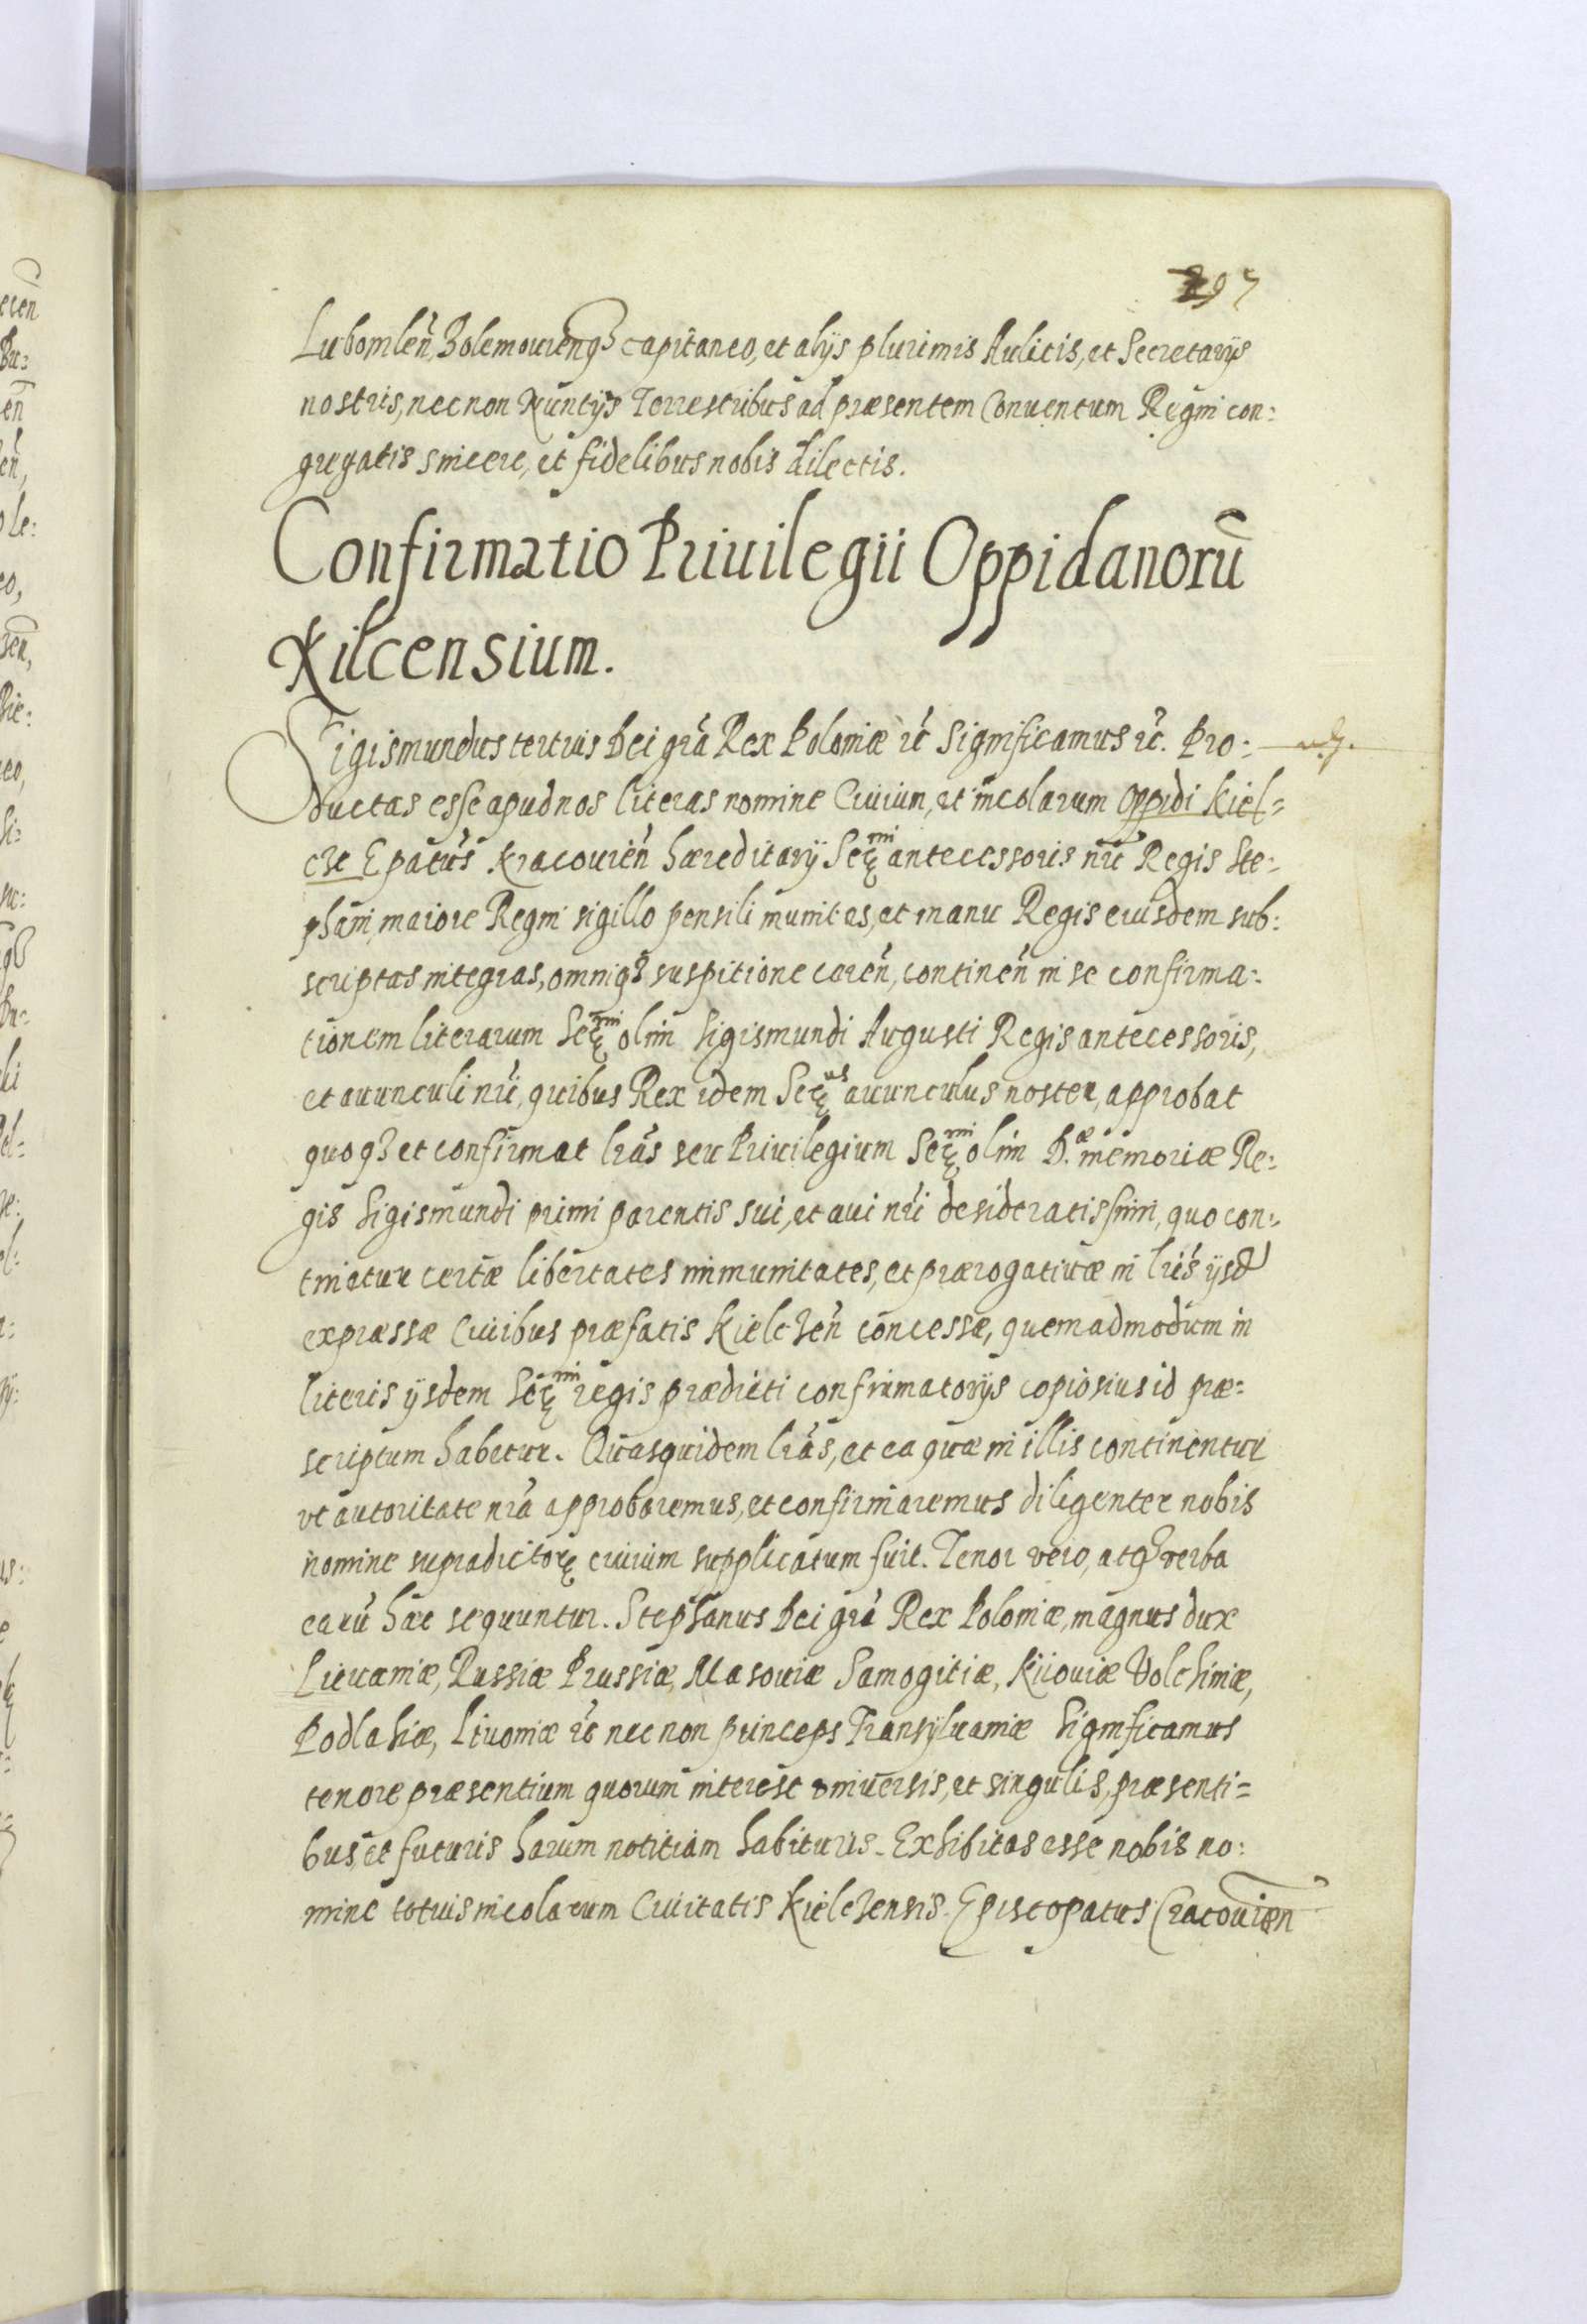 297
Lubomleñ, Bolemouieñqꝫ capitaneo, et alijs plurimis Aulicis, et Secretarijs
nostris, necnon Nuntijs Terrestribus ad præsentem Conuentum Regni con:
gregatis sincere, et fidelibus nobis dilectis.
Confirmatio Priuilegii Oppidanorū
Kilcensium.
Sigismundus tertius Dei grã Rex Poloniæ ꝛc̃ Significamus ꝛc̃. Pro:
ductas esse apud nos literas nomine Ciuiun, et incolarum oppidi Kiel=
cze Epatus̃ Kracouień hæreditarij Serᵐⁱ antecessoris nri̇̃ Regis Ste:
phani, maiore Regni sigillo pensili munitas, et manu Regis eiusdem sub:
scriptas integras, omniqꝫ suspitione careñ, contineñ in se confirma:
tionem literarum Serᵐⁱ olim Sigismundi Augusti Regis antecessoris,
et auunculi nri̇̃, quibus Rex idem Serᵘˢ auunculus noster, approbat
quoqꝫ et confirmat lrãs seu Priuilegium Serᵐⁱ olim D.ᵃᵉ memoriæ Re:
gis Sigismundi primi parentis sui, et aui nri̇̃ desideratissimi, quo con:
tinetur certæ libertates immunitates, et prærogatiuæ in lris̃ ijsd
expræssæ Ciuibus præfatis Kielczeñ concessæ, quemadmodum in
literis ijsdem Serᵐⁱ regis prædicti confirmatorijs copiosius id præ=
scriptum habetur. Quasquidem lrãs, et ea quæ in illis continentur
vt autoritate nrã approbaremus, et confirmaremus diligenter nobis
nomine supradictorꝝ ciuium supplicatum fuit. Tenor vero, atqꝫ verba
earũ hæc sequuntur. Stephanus Dei grã Rex Poloniæ, magnus dux
Lituaniæ, Russiæ Prussiæ, Masouiæ Samogitiæ, Kiiouiæ Volhiniæ,
Podlahiæ, Liuoniæ ꝛc̃ nec non princeps Transyluaniæ Significamus
tenore præsentium quorum interest vniuersis, et singulis, præsenti=
bus, et futuris harum notitiam habituris. Exhibitas esse nobis no:
mine totius incolarum Ciuitatis Kielczensis. Episcopatus Cracouień